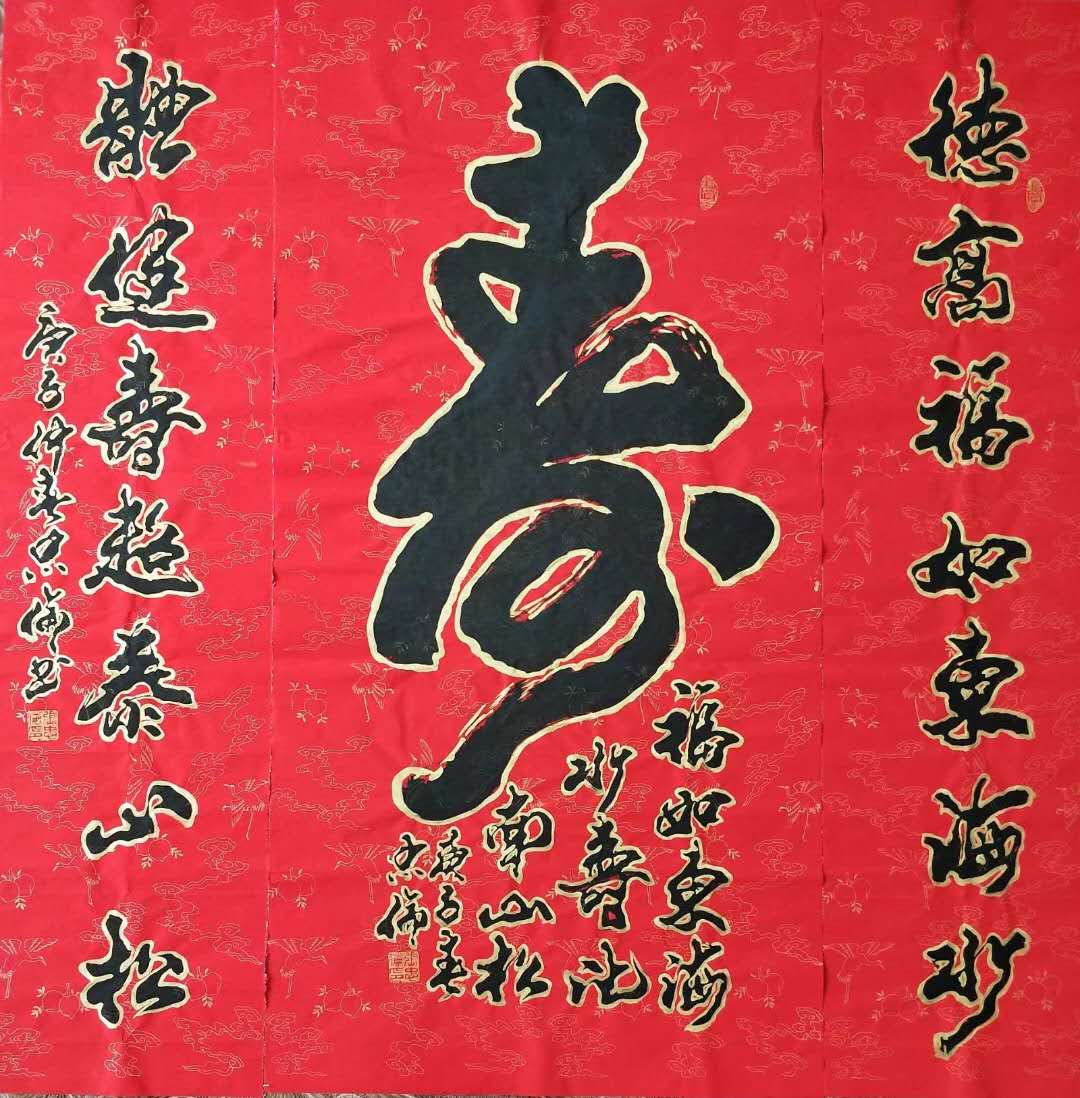 德高福如東海水
寿
福如東海
水壽比
南山松
庚子春
倫
體健壽超泰山松
庚子仲春倫书